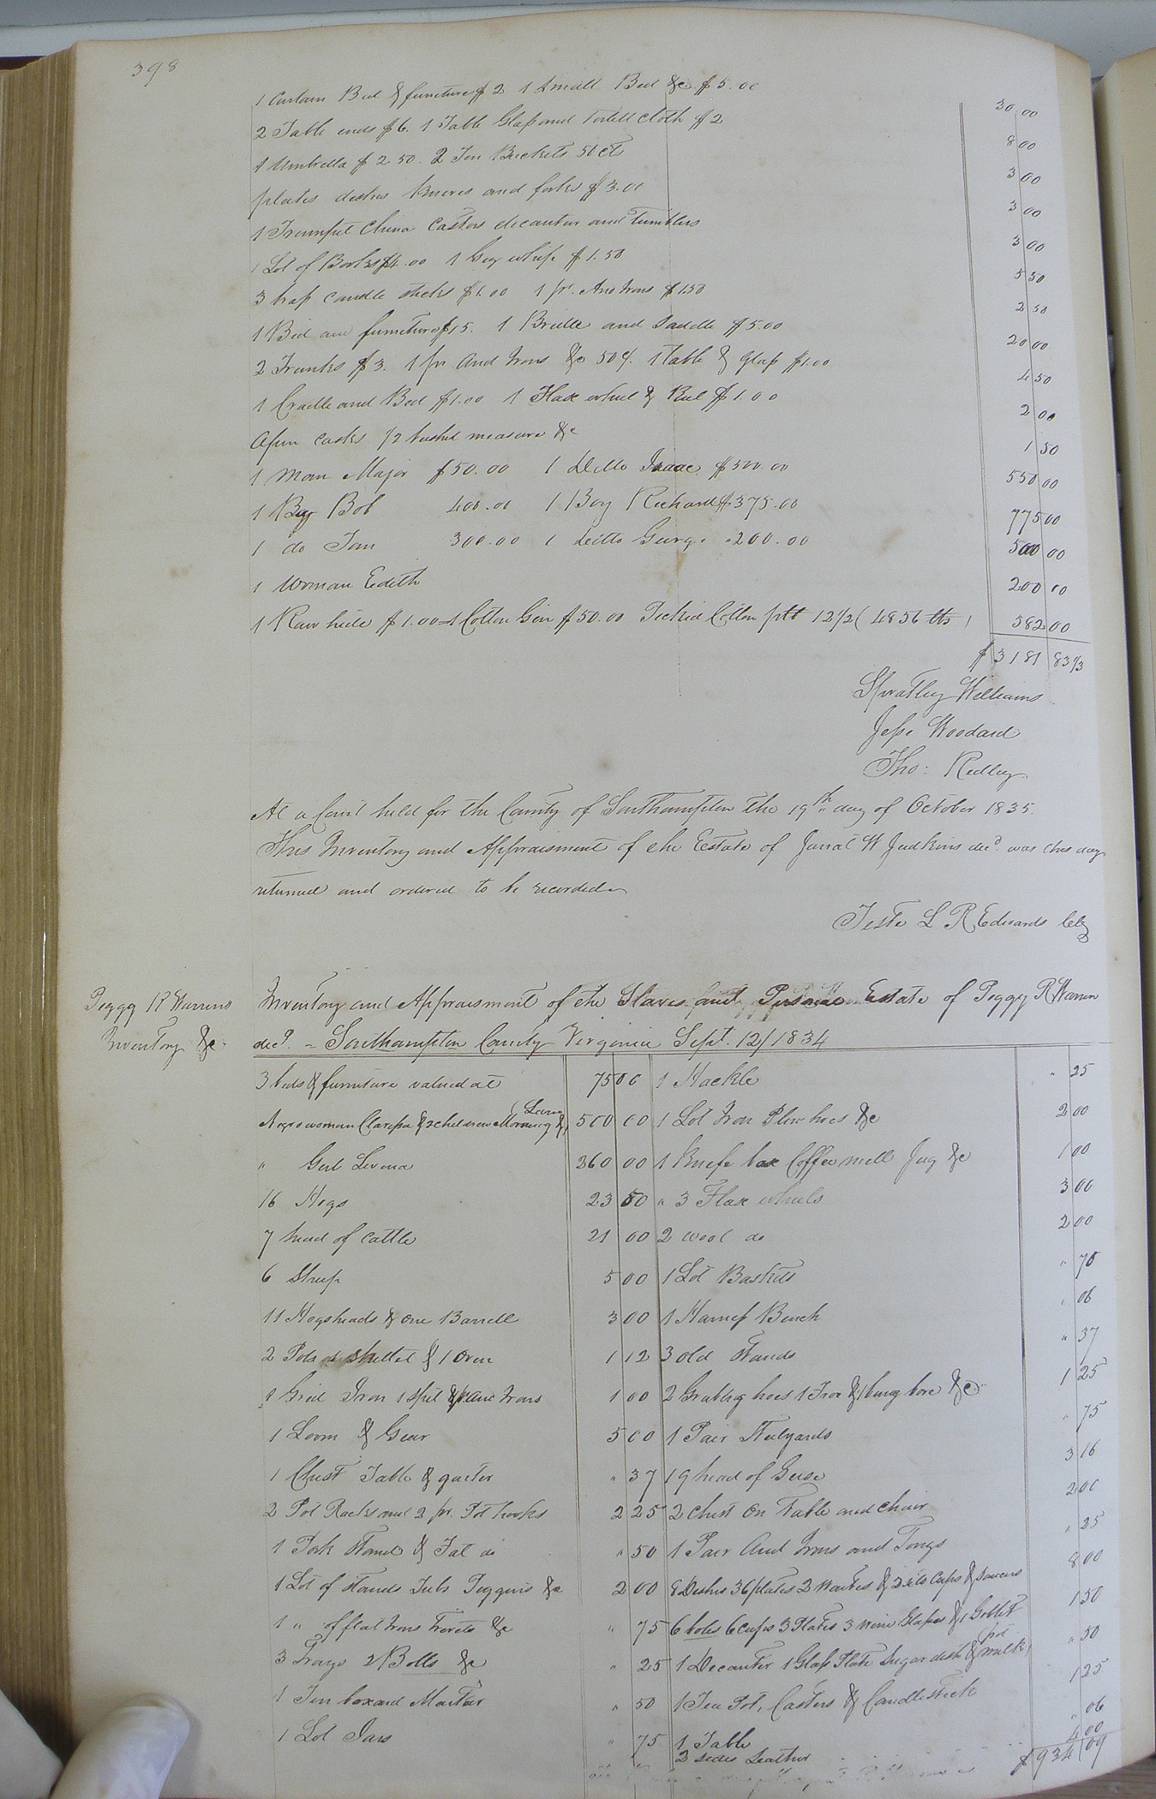 398
1 Curtain Bed & furniture $ 2 1 Small Bed &c $5.00 30 00
2 Table ends $6. 1 Table Glass and cloth $2 8 00
1 Umbrella $2 50. 2 Tin Buckets 50 cts 3 00
plates dishes knives and forks $3.00 3 00
1 Trumpet China Castors decanter and tumblers 3 00
1 Lot of Books $4.00 1 Gig whip $1.50 5 50
3 brass candle sticks $1.00 1 pr. And Irons $1.50 2 50
1 Bed and furniture $15. 1 Bridle and Saddle $5.00 20 00
2 Trunks $3. 1 pr And Irons &c 50 ¢. 1 Table & glass $1.00 4 50
1 Cradle and Bed $1.00 1 Flax wheel & Reel $1.00 2 00
A few casks 1/2 bushel measure &c 1 50
1 Man Major $50.00 1 Ditto Isaac $500.00 550 00
1 Boy Bob 400.00 1 Boy Richard $375.00 775 00
1 do Tom 300.00 1 ditto George 200.00 500 00
1 Woman Edith 200 00
1 Raw hide $1.00 1 Cotton Gin $50.00 Picked Cotton 12 1/2 ( 4856 lbs ) 382 00
$ 3181 83 1/3
Spratley Williams
Jesse Woodard
Tho: Ridley
At a Court held for the County of Southampton the 19th day of October 1835.
This Inventory and Appraisment of the Estate of Jarrat W Judkins decd. was this day
returned and ordered to be recorded
Teste L R Edwards Clk
Peggy R Warrens
Inventory &c.
Inventory and Appraisment of the Slaves and Personal Estate of Peggy R Warren
decd. = Southampton County Virginia Sept. 12/1834
3 beds & furniture valued at 75 00 1 Hackle " 25
Negro woman Clarissa & 2 children Morning & Levin 500 00 1 Lot Iron Plow hoes &c 2 00
" Girl Levina 260 00 1 Knife box Coffee mill Jug &c 1 00
16 Hogs 23 50 " 3 Flax wheels 3 00
7 head of cattle 21 00 2 wool do 2 00
6 Sheep 5 00 1 Lot Baskets " 75
11 Hogsheads & one Barrell 3 00 1 Harness Bench " 06
2 Pots 1 skillet & 1 Oven 1 12 3 old Stands " 37
1 Grid Iron 1 spit & Irons 1 00 2 Grubbing hoes 1 Froe & 1 bung bore &c 1 25
1 Loom & Gear 5 00 1 Pair Stilyards " 75
1 Chest Table & " 37 19 head of Geese 3 16
2 Pot Racks and 2 pr. Pot hooks 2 25 2 Chest On Table and Chair 2 00
1 Pork Stand & Fat do " 50 1 Pair And Irons and Tongs " 25
1 Lot of Stands Tubs Piggins &c 2 00 8 Dishes 36 plates 2 Waiters & 2 sets Cups & Saucers 8 00
1 " of flat Irons Trivets &c " 75 6 boles 6 cups 3 Plates 3 wine Glasses & 1 Goblet 1 50
3 Trays 2 Bolls &c " 25 1 Decanter 1 Glass Plate Sugar dish & milk pot " 50
1 Tin box and Mortar " 50 1 Tea Pot, Castors & Candlestick 1 25
1 Lot Jars " 75 1 Table " 06
2 sides Leather 4 00
$ 934 09